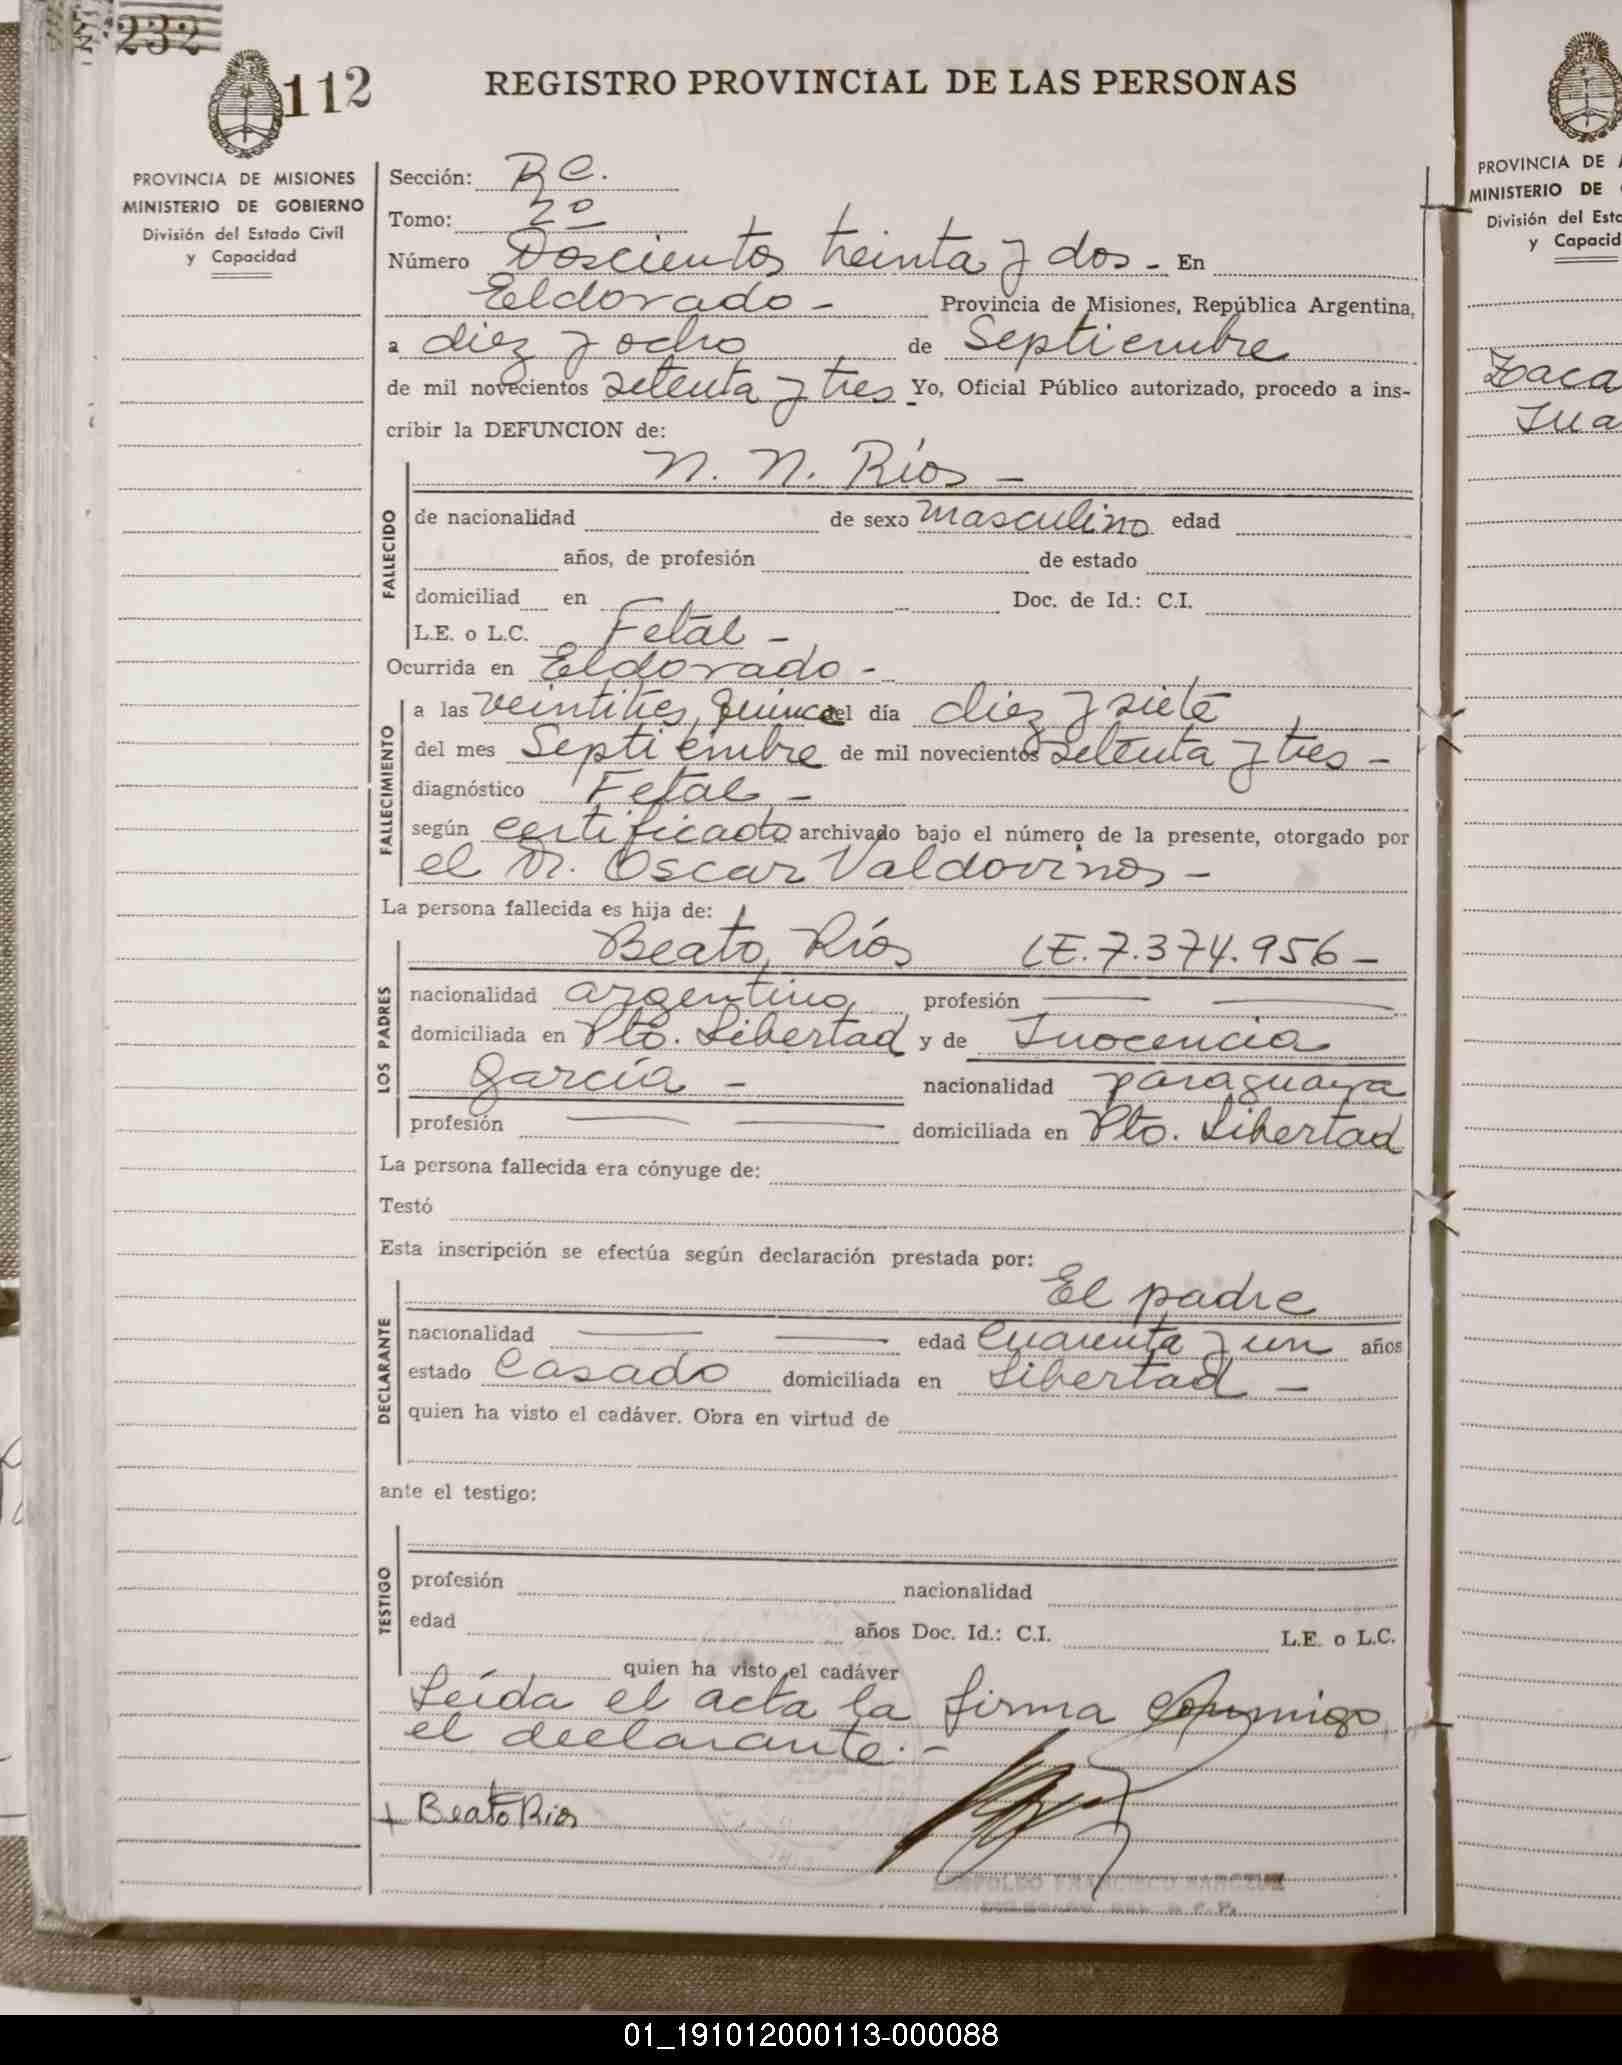 232
112
REGISTRO PROVINCIAL DE LAS PERSONAS
PROVINCIA DE MISIONES
MINISTERIO DE GOBIERNO
División del Estado Civil
y Capacidad
Sección: R C.
Tomo: 2º
Número Doscientos treinta y dos - En
Eldorado - Provincia de Misiones, República Argentina,
a diez y ocho de Septiembre
de mil novecientos setenta y tres Yo, Oficial Público autorizado, procedo a ins-
cribir la DEFUNCION de:
N. N. Ríos -
FALLECIDO
de nacionalidad de sexo masculino edad
años, de profesión de estado
domiciliad en Doc. de Id.: C.I.
L.E. o L.C. Fetal -
Ocurrida en Eldorado -
FALLECIMIENTO
a las veintitres, quince del día diez y siete
del mes Septiembre de mil novecientos setenta y tres -
diagnóstico Fetal -
según certificado archivado bajo el número de la presente, otorgado por
el Dr. Oscar Valdovinos -
La persona fallecida es hija de:
LOS PADRES
Beato Ríos LE. 7.374.956 -
nacionalidad argentino, profesión
domiciliada en Pto. Libertad y de Inocencia
García - nacionalidad paraguaya
profesión domiciliada en Pto. Libertad
La persona fallecida era cónyuge de:
Testó
Esta inscripción se efectúa según declaración prestada por:
DECLARANTE
El padre
nacionalidad edad cuarenta y un años
estado Casado domiciliada en Libertad -
quien ha visto el cadáver. Obra en virtud de
ante el testigo:
TESTIGO
profesión nacionalidad
edad años Doc. Id.: C.I. L.E. o L.C.
quien ha visto el cadáver
Leída el acta la firma conmigo
el declarante. -
+ Beato Rios
FRANCISCO
PROVINCIA DE
MINISTERIO DE
División del Esta
y Capacid
Zaca
Jua
01_191012000113-000088